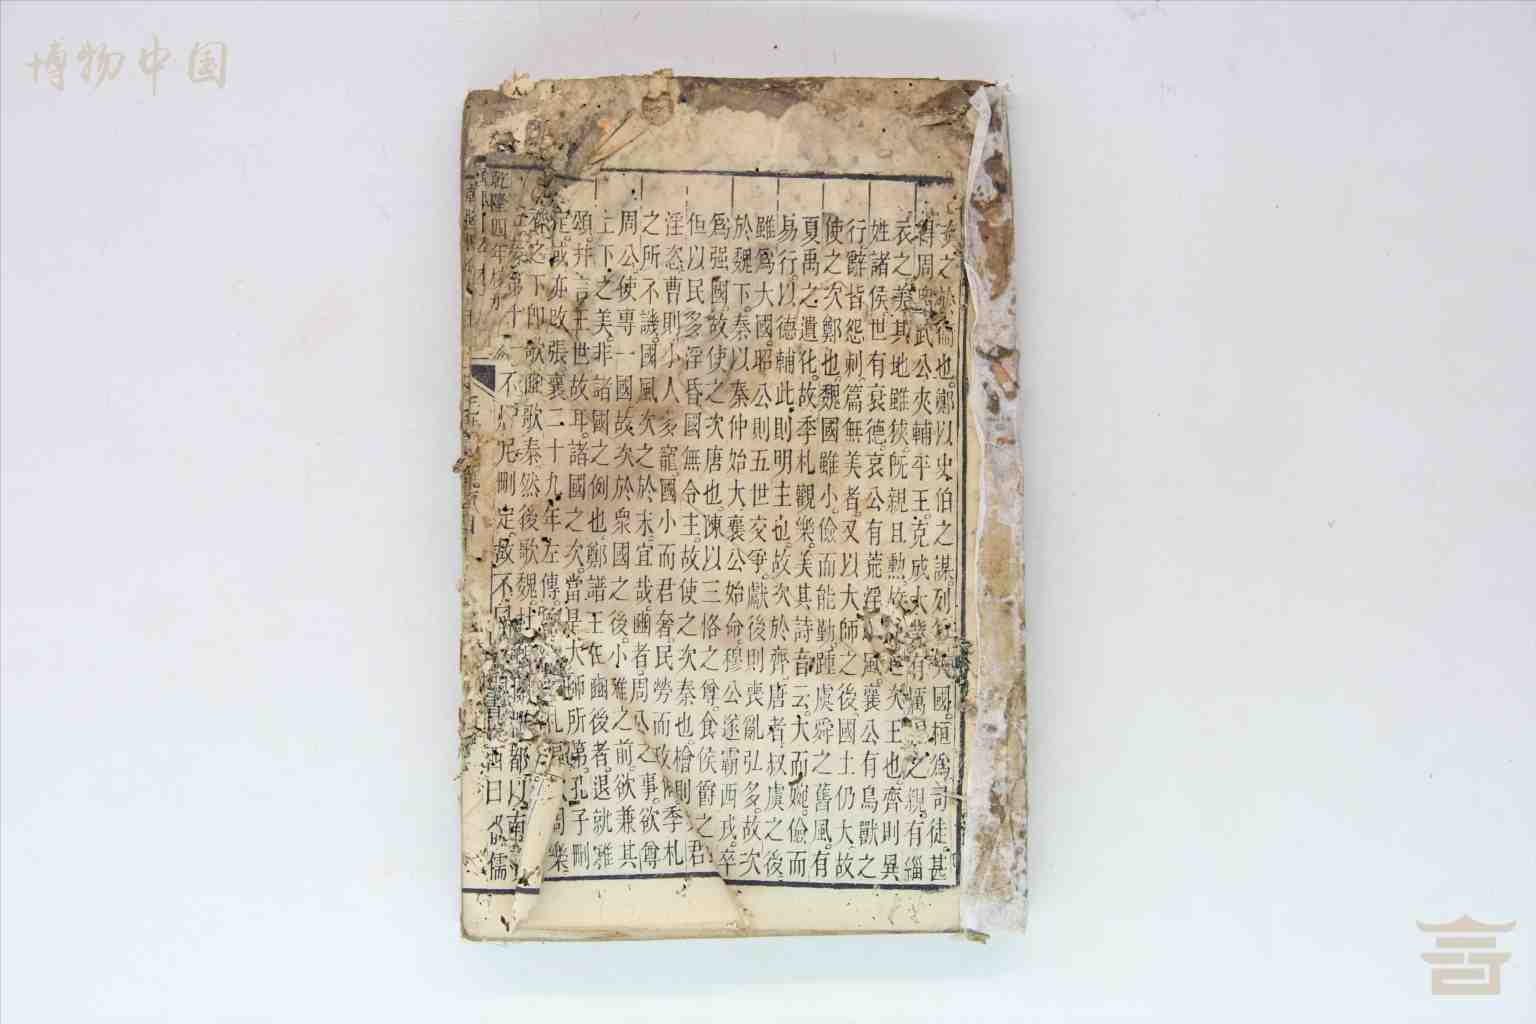 博物中国
之
也鄭以史伯之謀列
國桓為司徒甚
周
武公夾輔平王克成大
有
之親有緇
衣之美其地雖狹既親且勲
次王也齊則異
姓諸侯世有衰德哀公有荒淫
風襄公有鳥獸之
行辭皆怨刺篇無美者又以大師之後國土仍大故
使之次鄭也魏國雖小儉而能勤踵虞舜之舊風有
夏禹之遺化故季札觀樂美其詩音云大而婉儉而
易行以德輔此則明主也故次於齊唐者叔虞之後
雖為大國昭公則五世交爭獻後則喪亂弘多故次
於魏下秦以秦仲始大襄公始命穆公遂霸西戎卒
為强國故使之次唐也陳以三恪之尊食侯爵之君
但以民多淫昏國無令主故使之次秦也檜則
淫恣曹則小人多寵國小而君奢民勞而政
季札
之所不譏國風次之於末宜哉豳者周公之事欲尊
周公使專一國故次於衆國之後小雅之前欲兼其
上下之美非諸國之例也鄭譜王在豳後者退就雅
頌并言王世故耳諸國之次當是大師所第孔子刪
定或亦改張襄二十九年左傳
札
周樂
齊之下即歌豳歌秦然後歌魏杜
乾隆四年校刊
秦第十一
不
尼刪定故不同
都以南
儒